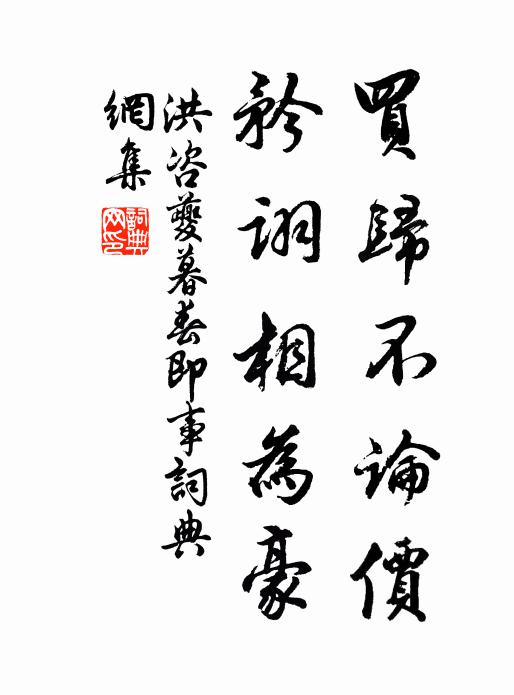 買歸不論價
矜詡相為豪
洪咨夔暮春即事詞典
網集
詞典
网印